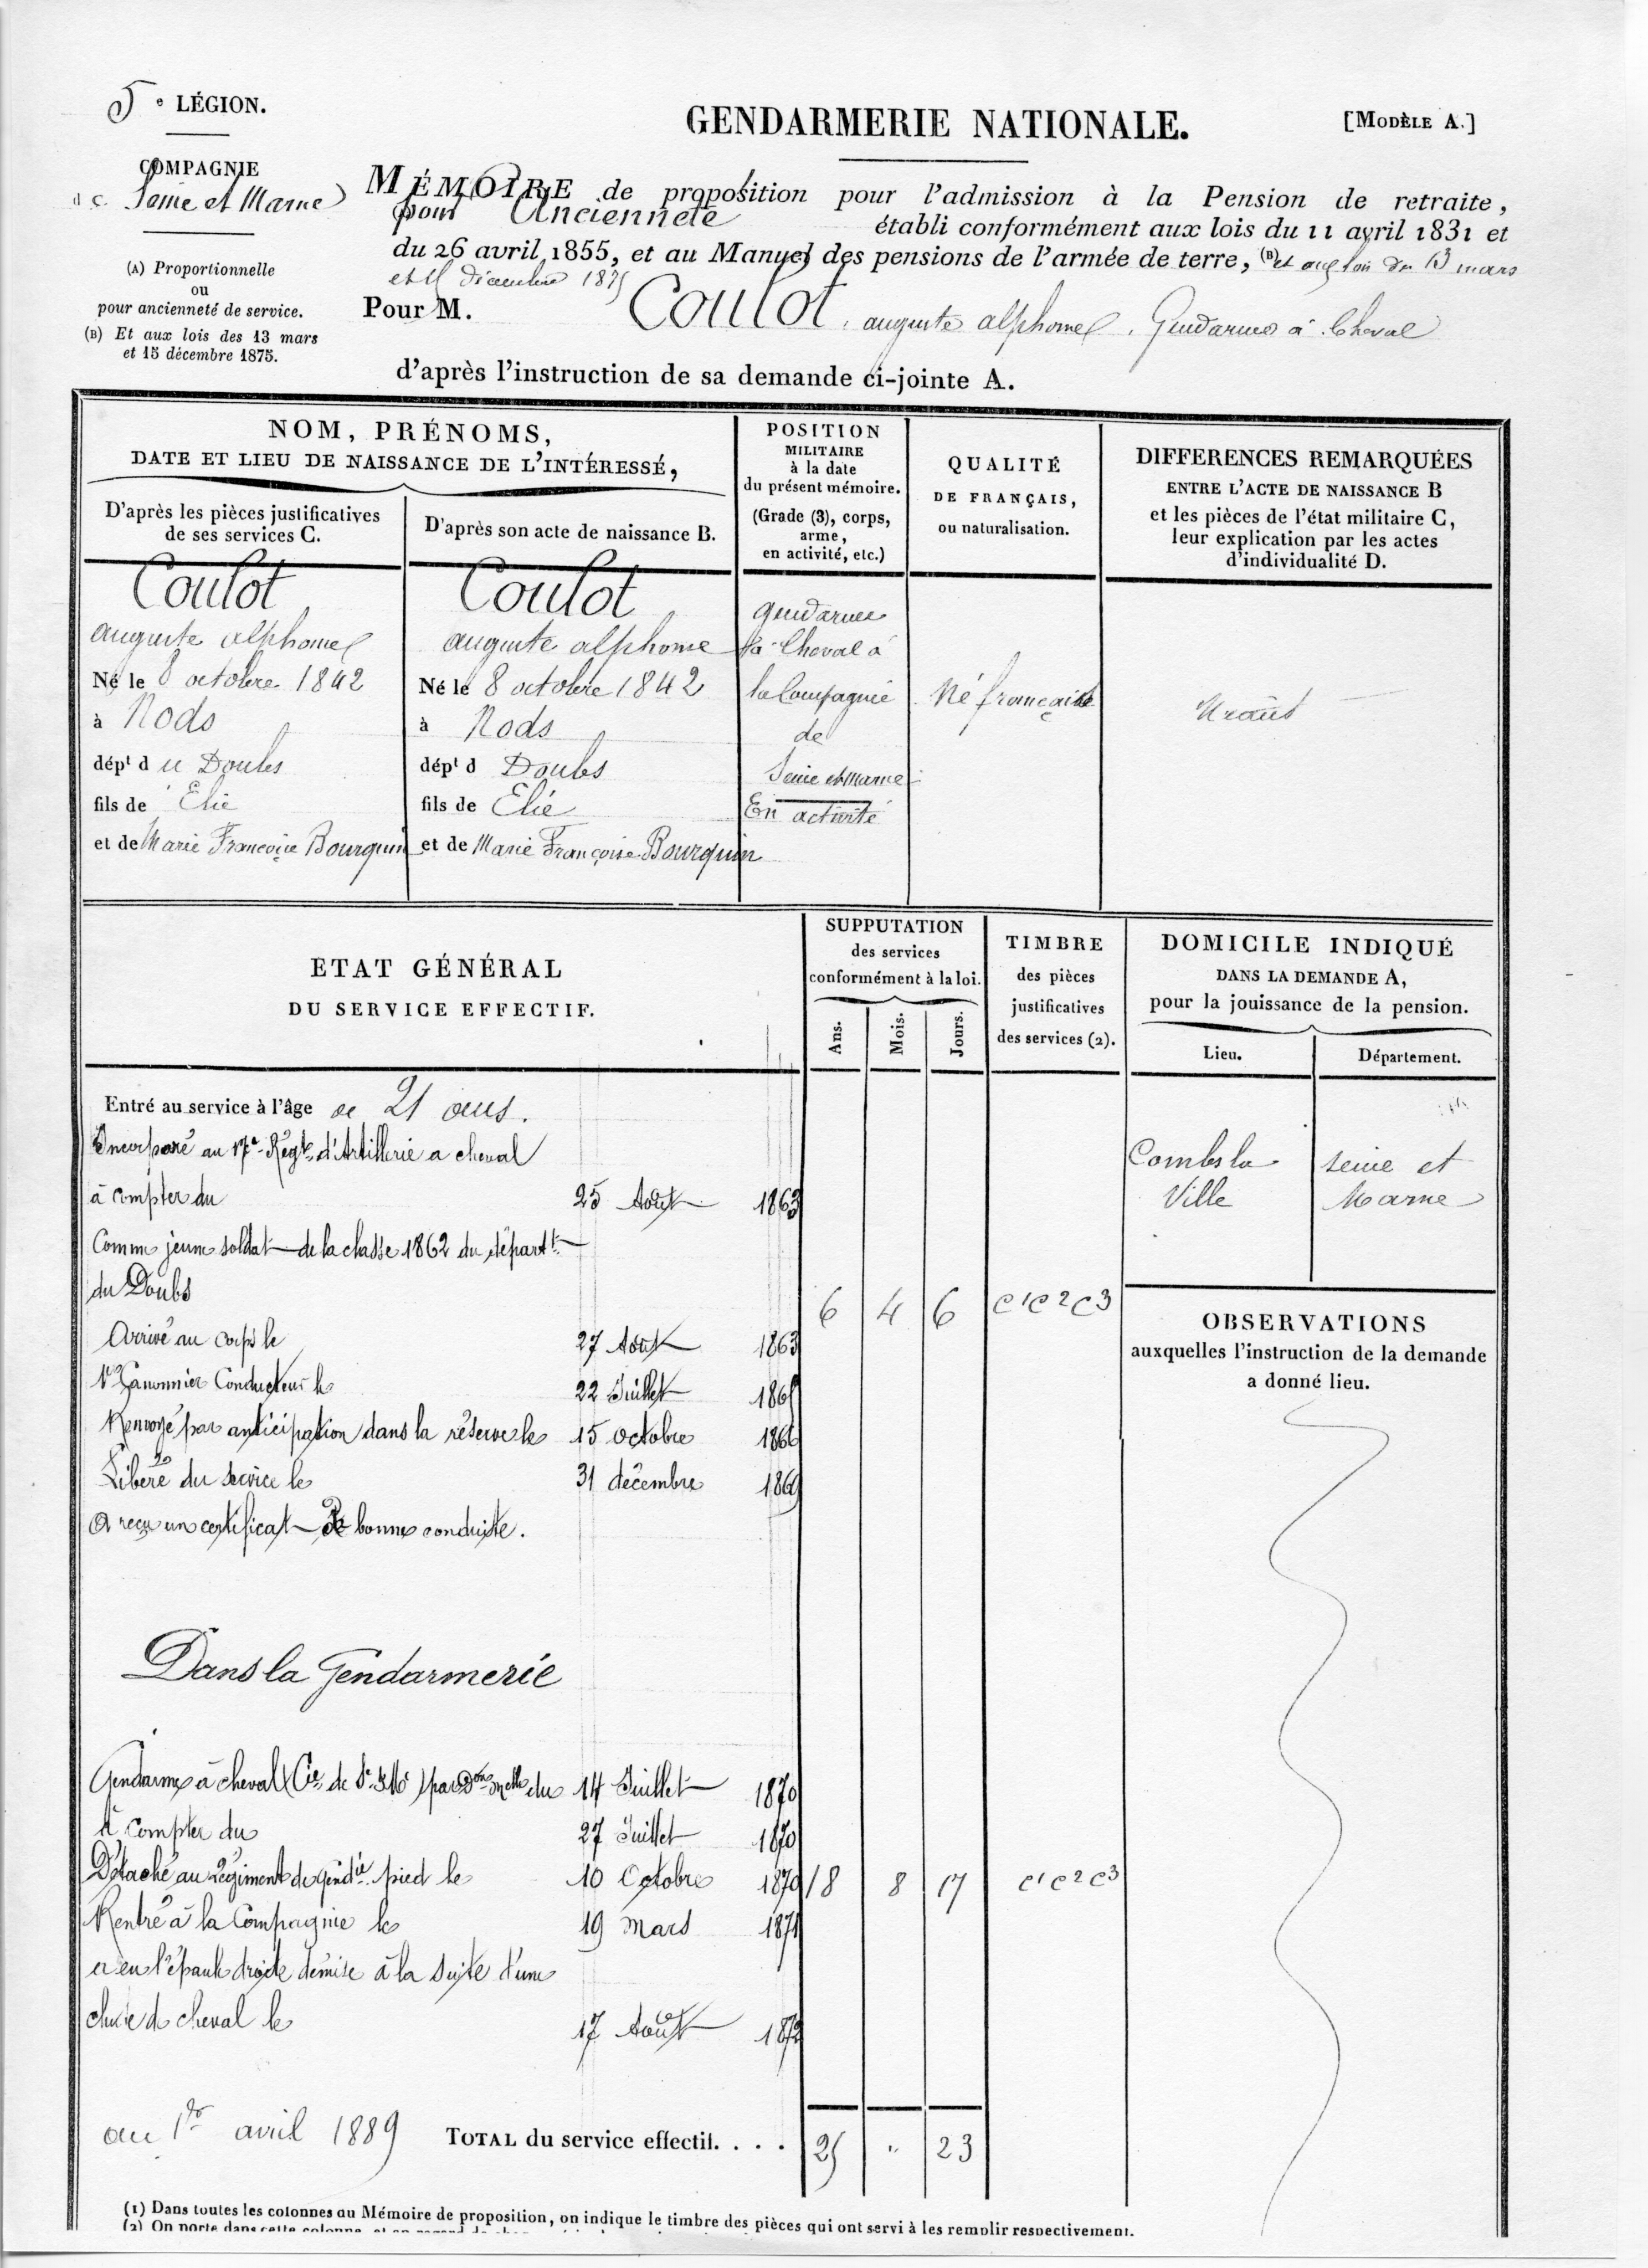 5e LÉGION.
GENDARMERIE NATIONALE.
[MODÈLE A.]
COMPAGNIE
de Seine et Marne
MÉMOIRE de proposition pour l'admission à la Pension de retraite,
pour Ancienneté établi conformément aux lois du 11 avril 1831 et
du 26 avril 1855, et au Manuel des pensions de l'armée de terre, (B) et aux lois du 13 mars
et 15 décembre 1875
(A) Proportionnelle
ou
pour ancienneté de service.
(B) Et aux lois des 13 mars
et 15 décembre 1875.
Pour M. Coulot, auguste alphonse, Gendarme à Cheval
d'après l'instruction de sa demande ci-jointe A.
NOM, PRÉNOMS,
DATE ET LIEU DE NAISSANCE DE L'INTÉRESSÉ,
D'après les pièces justificatives
de ses services C.
D'après son acte de naissance B.
POSITION
MILITAIRE
à la date
du présent mémoire.
(Grade (3), corps,
arme,
en activité, etc.)
QUALITÉ
DE FRANÇAIS,
ou naturalisation.
DIFFERENCES REMARQUÉES
ENTRE L'ACTE DE NAISSANCE B
et les pièces de l'état militaire C,
leur explication par les actes
d'individualité D.
Coulot
auguste alphonse
Né le 8 octobre 1842
à Nods
dépt du Doubs
fils de Elie
et de Marie Françoise Bourquin
Coulot
auguste alphonse
Né le 8 octobre 1842
à Nods
dépt d Doubs
fils de Elie
et de Marie Françoise Bourquin
gendarme
à Cheval à
la Compagnie
de
Seine et Marne
En activité
Né française
Néant
ETAT GÉNÉRAL
DU SERVICE EFFECTIF.
SUPPUTATION
des services
conformément à la loi.
Ans.
Mois.
Jours.
TIMBRE
des pièces
justificatives
des services (2).
DOMICILE INDIQUÉ
DANS LA DEMANDE A,
pour la jouissance de la pension.
Lieu.
Département.
Entré au service à l'âge de 21 ans.
Incorporé au 17e Régt d'Artillerie a cheval
à compter du 25 Août 1863
Comme jeune soldat de la classe 1862 du départt
du Doubs
6 4 6 C1C2C3
Arrivé au corps le 27 Août 1863
1er Canonnier Conducteur le 22 Juillet 1865
Renvoyé par anticipation dans la réserve le 15 octobre 1866
Libéré du service le 31 décembre 1869
A reçu un certificat de bonne conduite.
Combs la
Ville
Seine et
Marne
OBSERVATIONS
auxquelles l'instruction de la demande
a donné lieu.
Dans la Gendarmerie
Gendarme à cheval Cie de S. & Me par Don Melle du 14 Juillet 1870
A Compter du 27 Juillet 1870
Détaché au Régiment de Gendie à pied le 10 Octobre 1870 18 8 17 C1C2C3
Rentré à la Compagnie le 19 Mars 1871
a eu l'épaule droite démise à la suite d'une
chute de cheval le 17 Août 1872
au 1er avril 1889 TOTAL du service effectif. . . . 25 " 23
(1) Dans toutes les colonnes au Mémoire de proposition, on indique le timbre des pièces qui ont servi à les remplir respectivement.
(2) On porte dans cette colonne, et en regard de